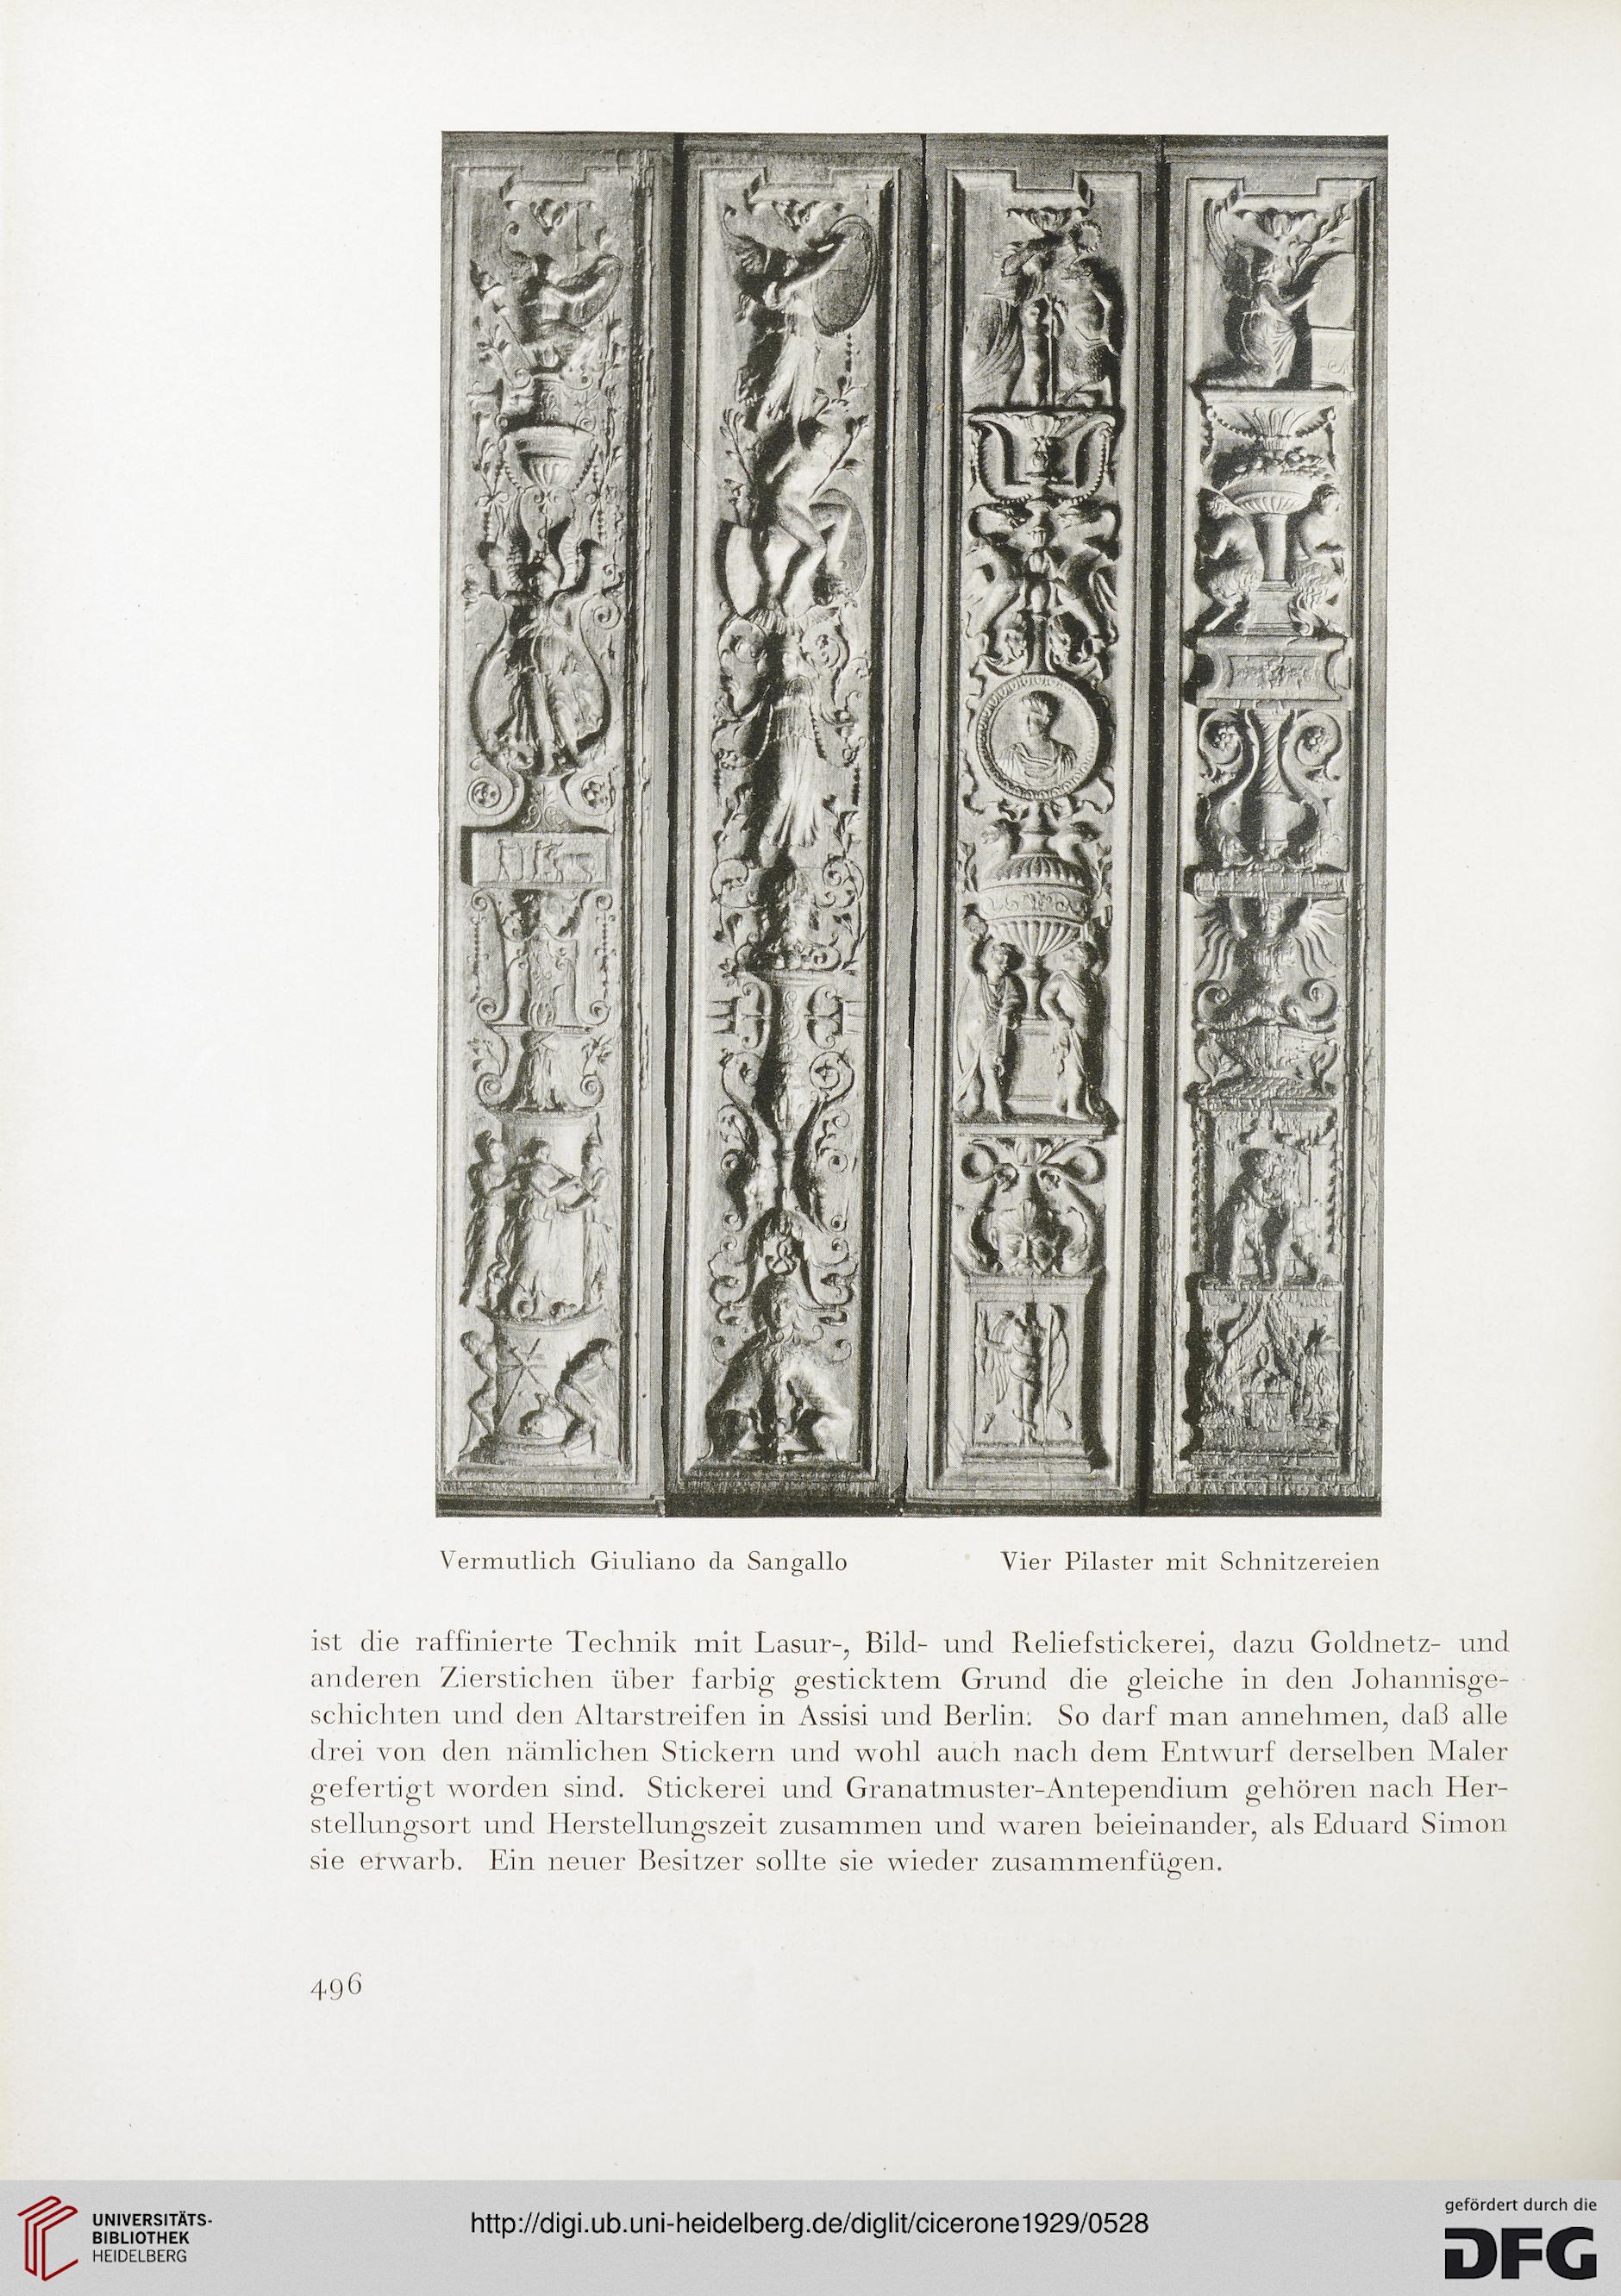 Vermutlich Giuliano da Sangallo
Vier Pilaster mit Schnitzereien
ist die raffinierte Technik mit Lasur-, Bild- und Reliefstickerei, dazu Goldnetz- und
anderen Zierstichen über farbig gesticktem Grund die gleiche in den Johannisge-
schichten und den Altarstreifen in Assisi und Berlin. So darf man annehmen, daß alle
drei von den nämlichen Stickern und wohl auch nach dem Entwurf derselben Maler
gefertigt worden sind. Stickerei und Granatmuster-Antependium gehören nach Her-
stellungsort und Herstellungszeit zusammen und waren beieinander, als Eduard Simon
sie erwarb. Ein neuer Besitzer sollte sie wieder zusammenfügen.
496
UNIVERSITÄTS-
BIBLIOTHEK
HEIDELBERG
http://digi.ub.uni-heidelberg.de/diglit/cicerone1929/0528
gefördert durch die
DFG